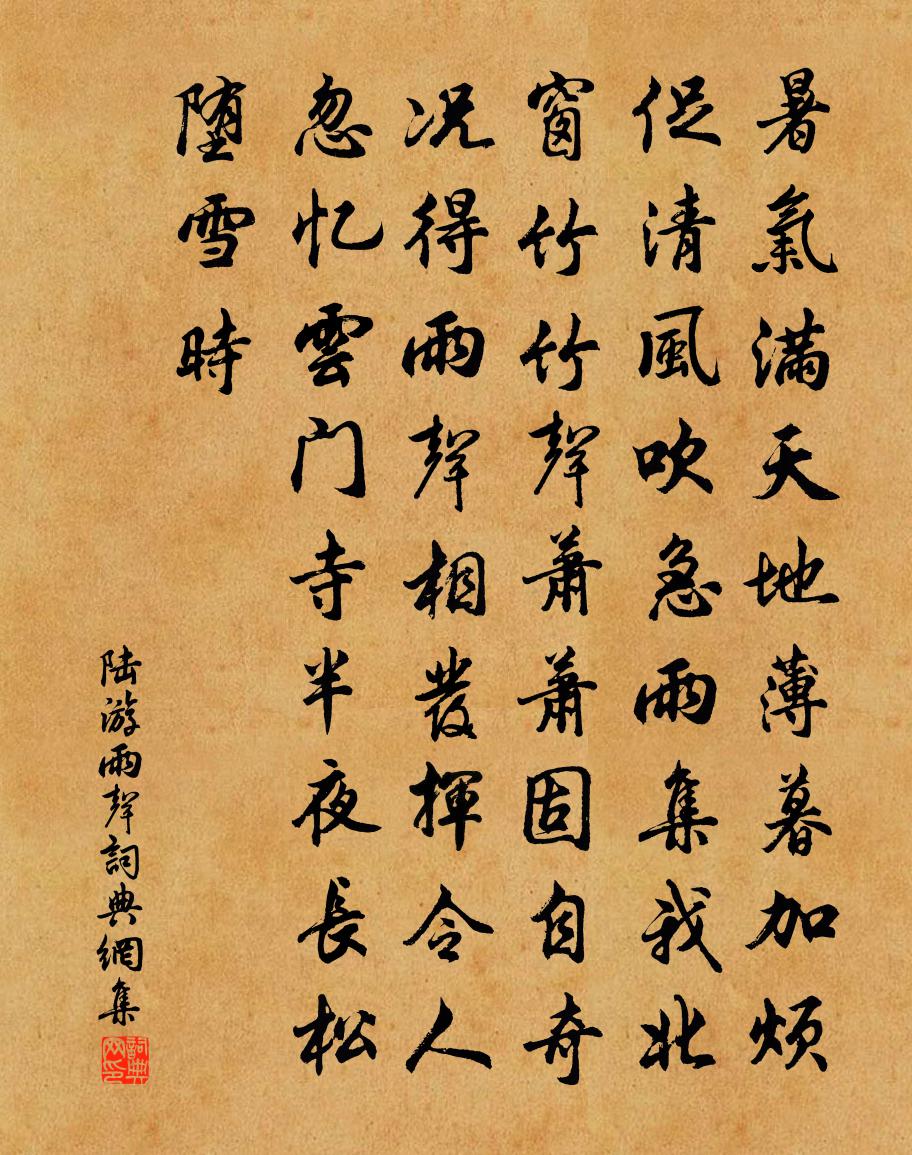 暑氣滿天地薄暮加煩
促清風吹急雨集我北
窗竹竹聲蕭蕭固自奇
况得雨聲相發揮令人
忽忆雲门寺半夜長松
堕雪時
陆游雨聲詞典網集
詞典网印